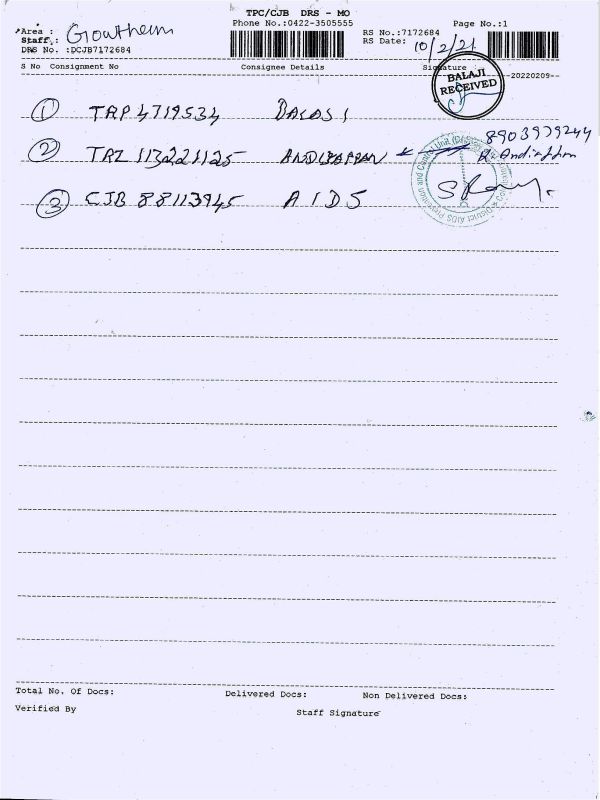 TPC/CJB DRS - MO
Phone No.:0422-3505555
Page No.:1
Area : Gowtham
Staff :
DRS No. :DCJB7172684
RS No.:7172684
RS Date: 10/2/21
S No Consignment No Consignee Details Signature
--20220209--
BALAJI
RECEIVED
① TRP 4719534 BALAJI
8903979244
② TRZ 113221125
③ CJB 88113945 AIDS
District AIDS Prevention and Control Unit
Total No. Of Docs: Delivered Docs: Non Delivered Docs:
Verified By Staff Signature